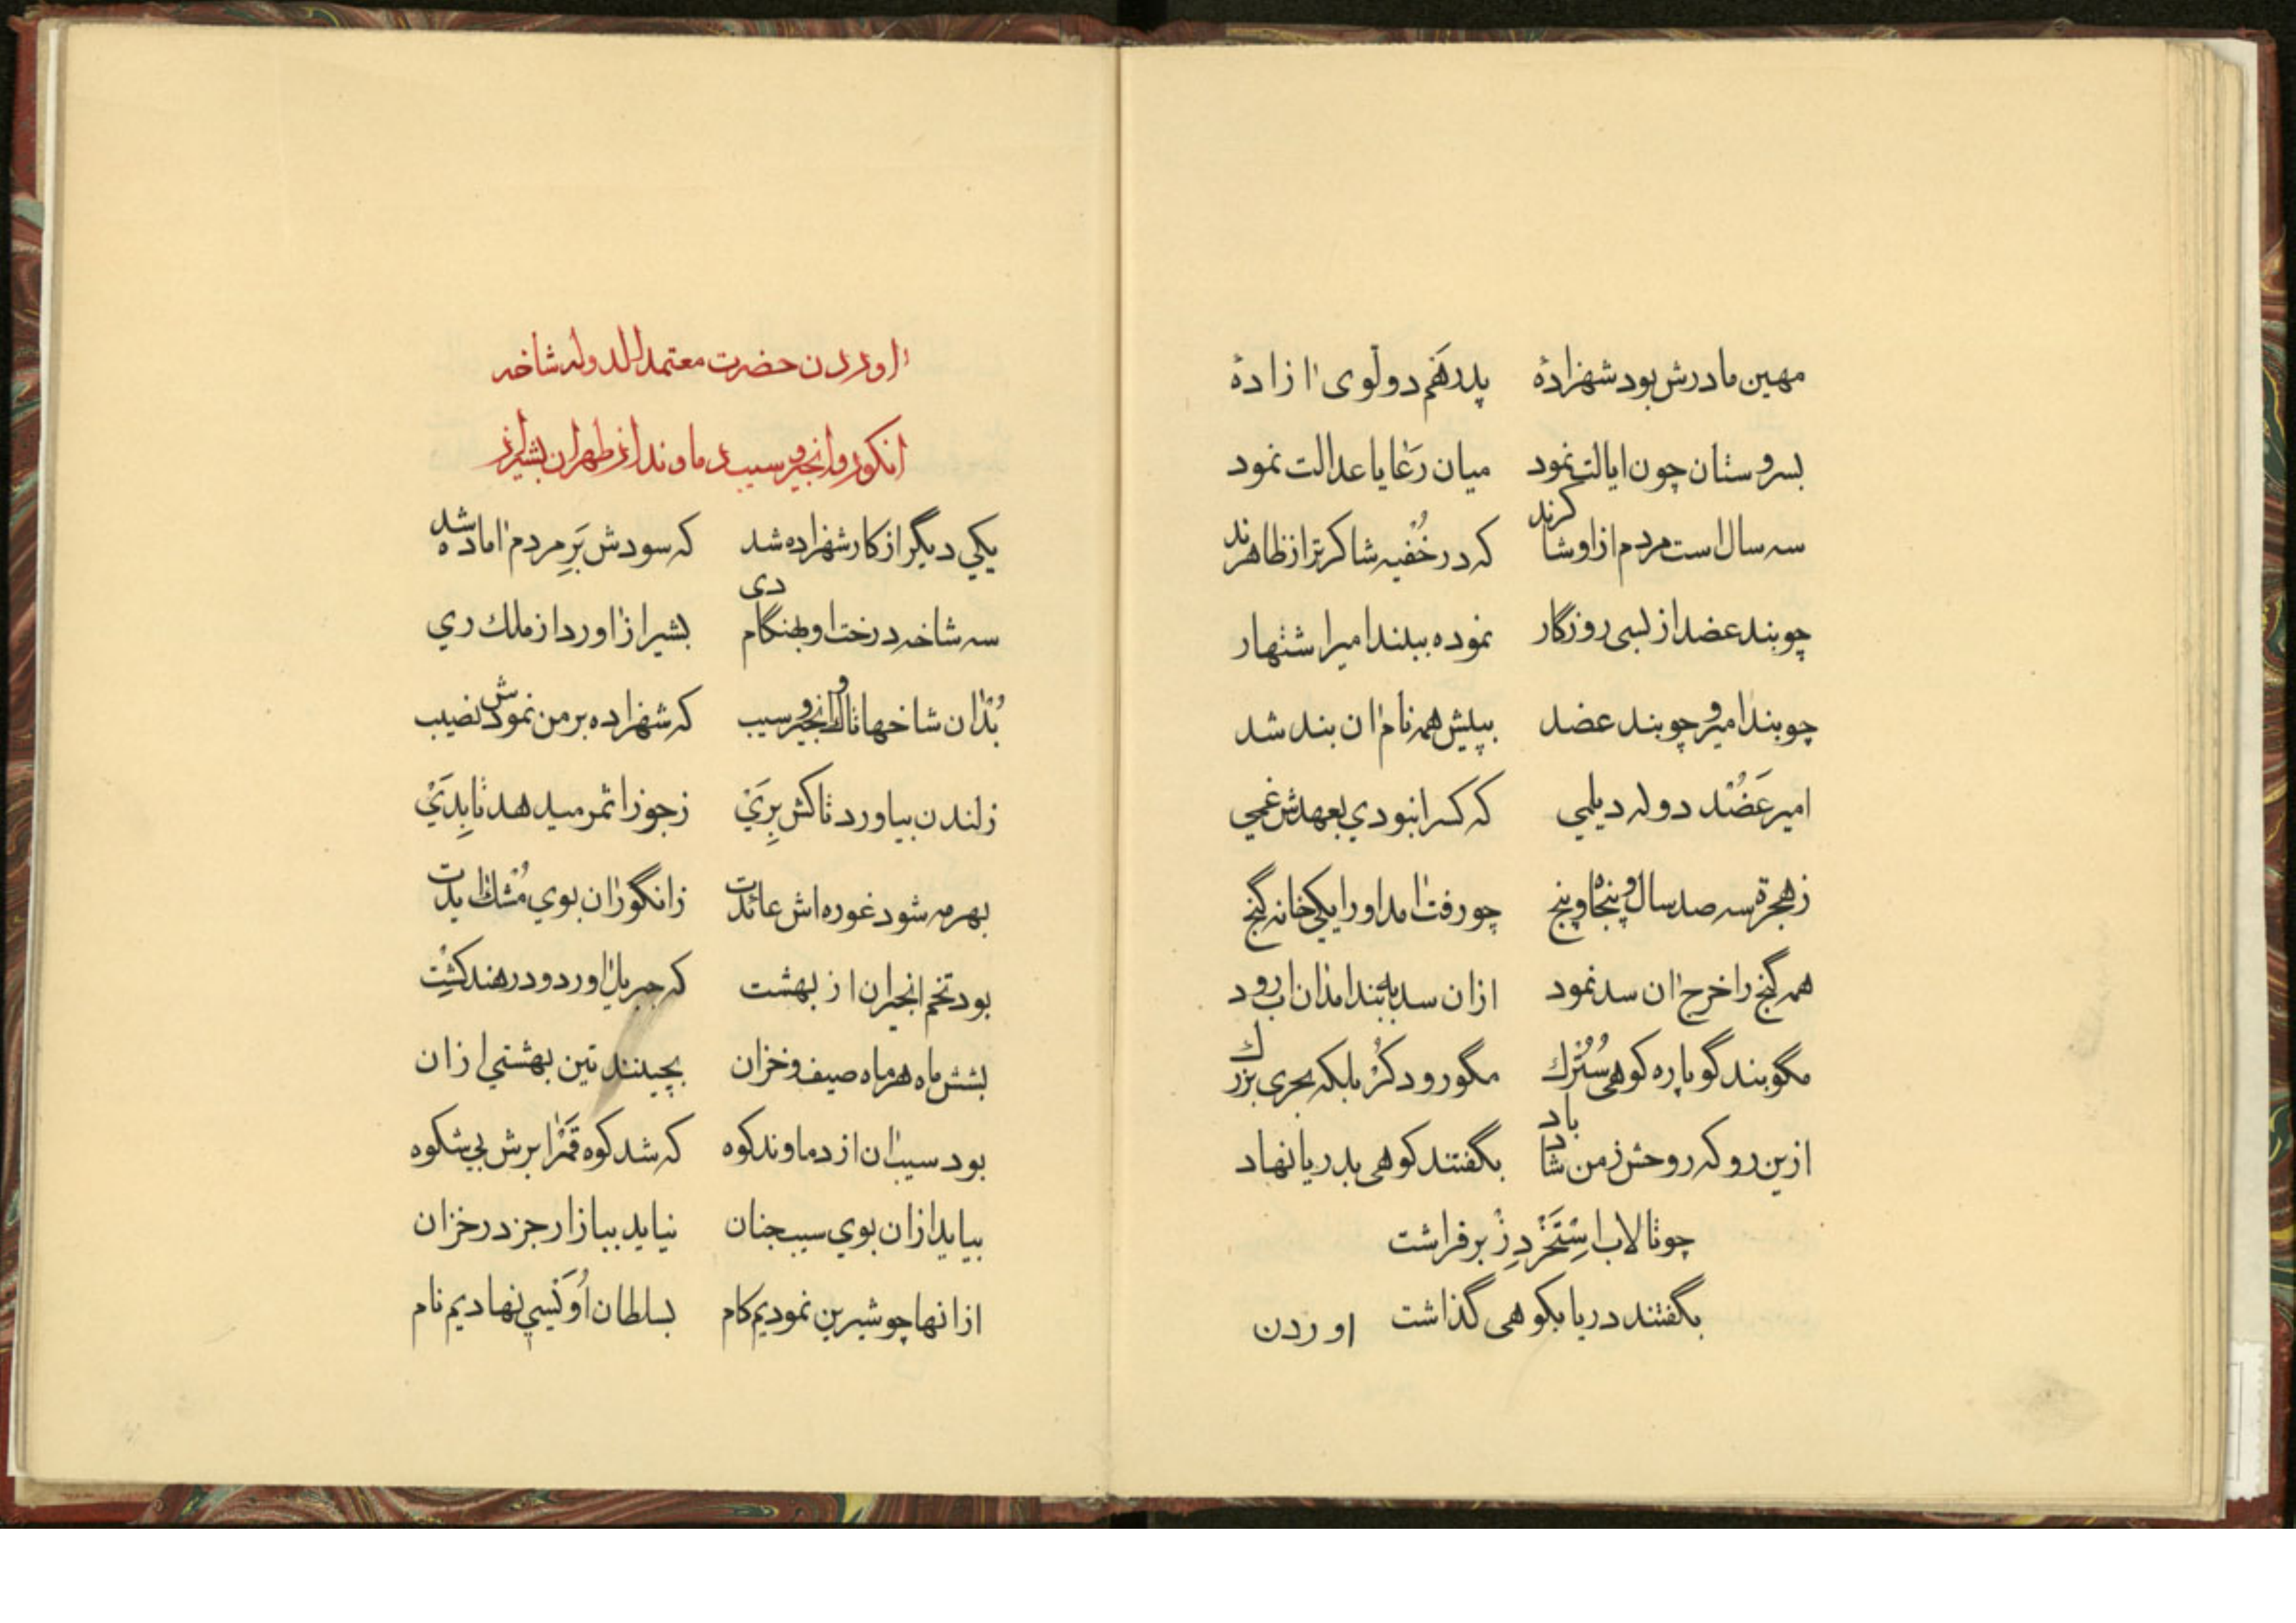 مهین مادرش بود شهزادهٔ پدر هم دولوی آزادهٔ
بسروستان چون ایالت نمود میان رعایا عدالت نمود
سه سال است مردم ازاو شاکرند که در خُفیه شاکرتر از ظاهرند
چو بند عضد از لسی روزگار نموده ببلند امیر اشتهار
چو بند امیر و چو بند عضد بپیش همه نام آن بند شد
امیر عَضُد دوله دیلمی که کس را نبودی بعهدش غمی
ز هجرة سه صد سال و پنجاه و پنج چو رفت آمد اورا یکی خانه گنج
همه گنج را خرج آن سد نمود ازان سد به بند آمد آن آب رود
مگو بند گو پاره کوهی سُتُرك مگو رود کُر بلکه بحری بزرك
ازین رو که روحش ز من شاد باد بگفتند کوهی بدریا نهاد
چو تالاب اِستَخر دِز برفراشت
بگفتند دریا بکوهی گذاشت اوردن
آوردن حضرت معتمدالدوله شاخه
انکور و انجیر و سیب دماوند از طهران بشیراز
یکی دیگر از کار شهزاده شد که سودش بَرِ مردم آماده شد
سه شاخه درخت او بهنگام دی بشیراز آورد از ملك ری
بُدْ آن شاخها تاك و انجیر و سیب که شهزاده بر من نمودش نصیب
ز لندن بیاورد تاکش بِرَیْ ز جوزا ثمر میدهد تا بِدَیْ
بهر مه شود غوره اش عائدت ز انگور آن بوی مُشك آیدت
بود تخم انجیر آن از بهشت که جبریل آورد و در هند کِشت
بشش ماه هر ماه صیف و خزان بچینند تین بهشتی ازان
بود سیب آن از دماوند کوه که شد کوه قَمْرا برش بی شکوه
بیاید ازان بوی سیب جنان نیاید ببازار جز در خزان
ازانها چو شیرین نمودیم کام بسلطان اُوَیْسی نهادیم نام